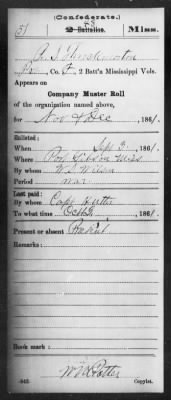 (Confederate.)
5 2 Battalion. 48 Miss.
Co. F, 2 Batt'n Mississippi Vols.
Appears on
Company Muster Roll
of the organization named above,
for Nov & Dec, 1861.
Enlisted:
When Sept 3, 1861.
Where Port Gibson Miss
By whom W. S. Wilson
Period war
Last paid:
By whom Capt
To what time Oct 31, 1861.
Present or absent Present
Remarks:
Book mark:
(642)
Copyist.